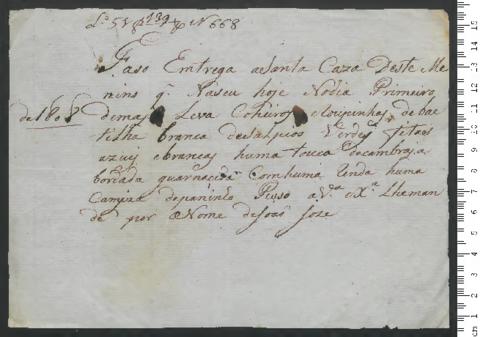 Lº 51 f 139 N 668
Faso Entrega aSanta Caza Deste Me
nino q. Naseu hoje Nodia Primeiro
demaio Leva Coheiros eRoupinhas de bae
de 1808
tilha branca desalpicos Verdes fitas
azuis ebrancas huma touca decambraia
bordada guarnecida Comhuma Renda huma
Camiza depaninho Peso a V. Ex.ª Lheman
de por o Nome deJoaõ Joze